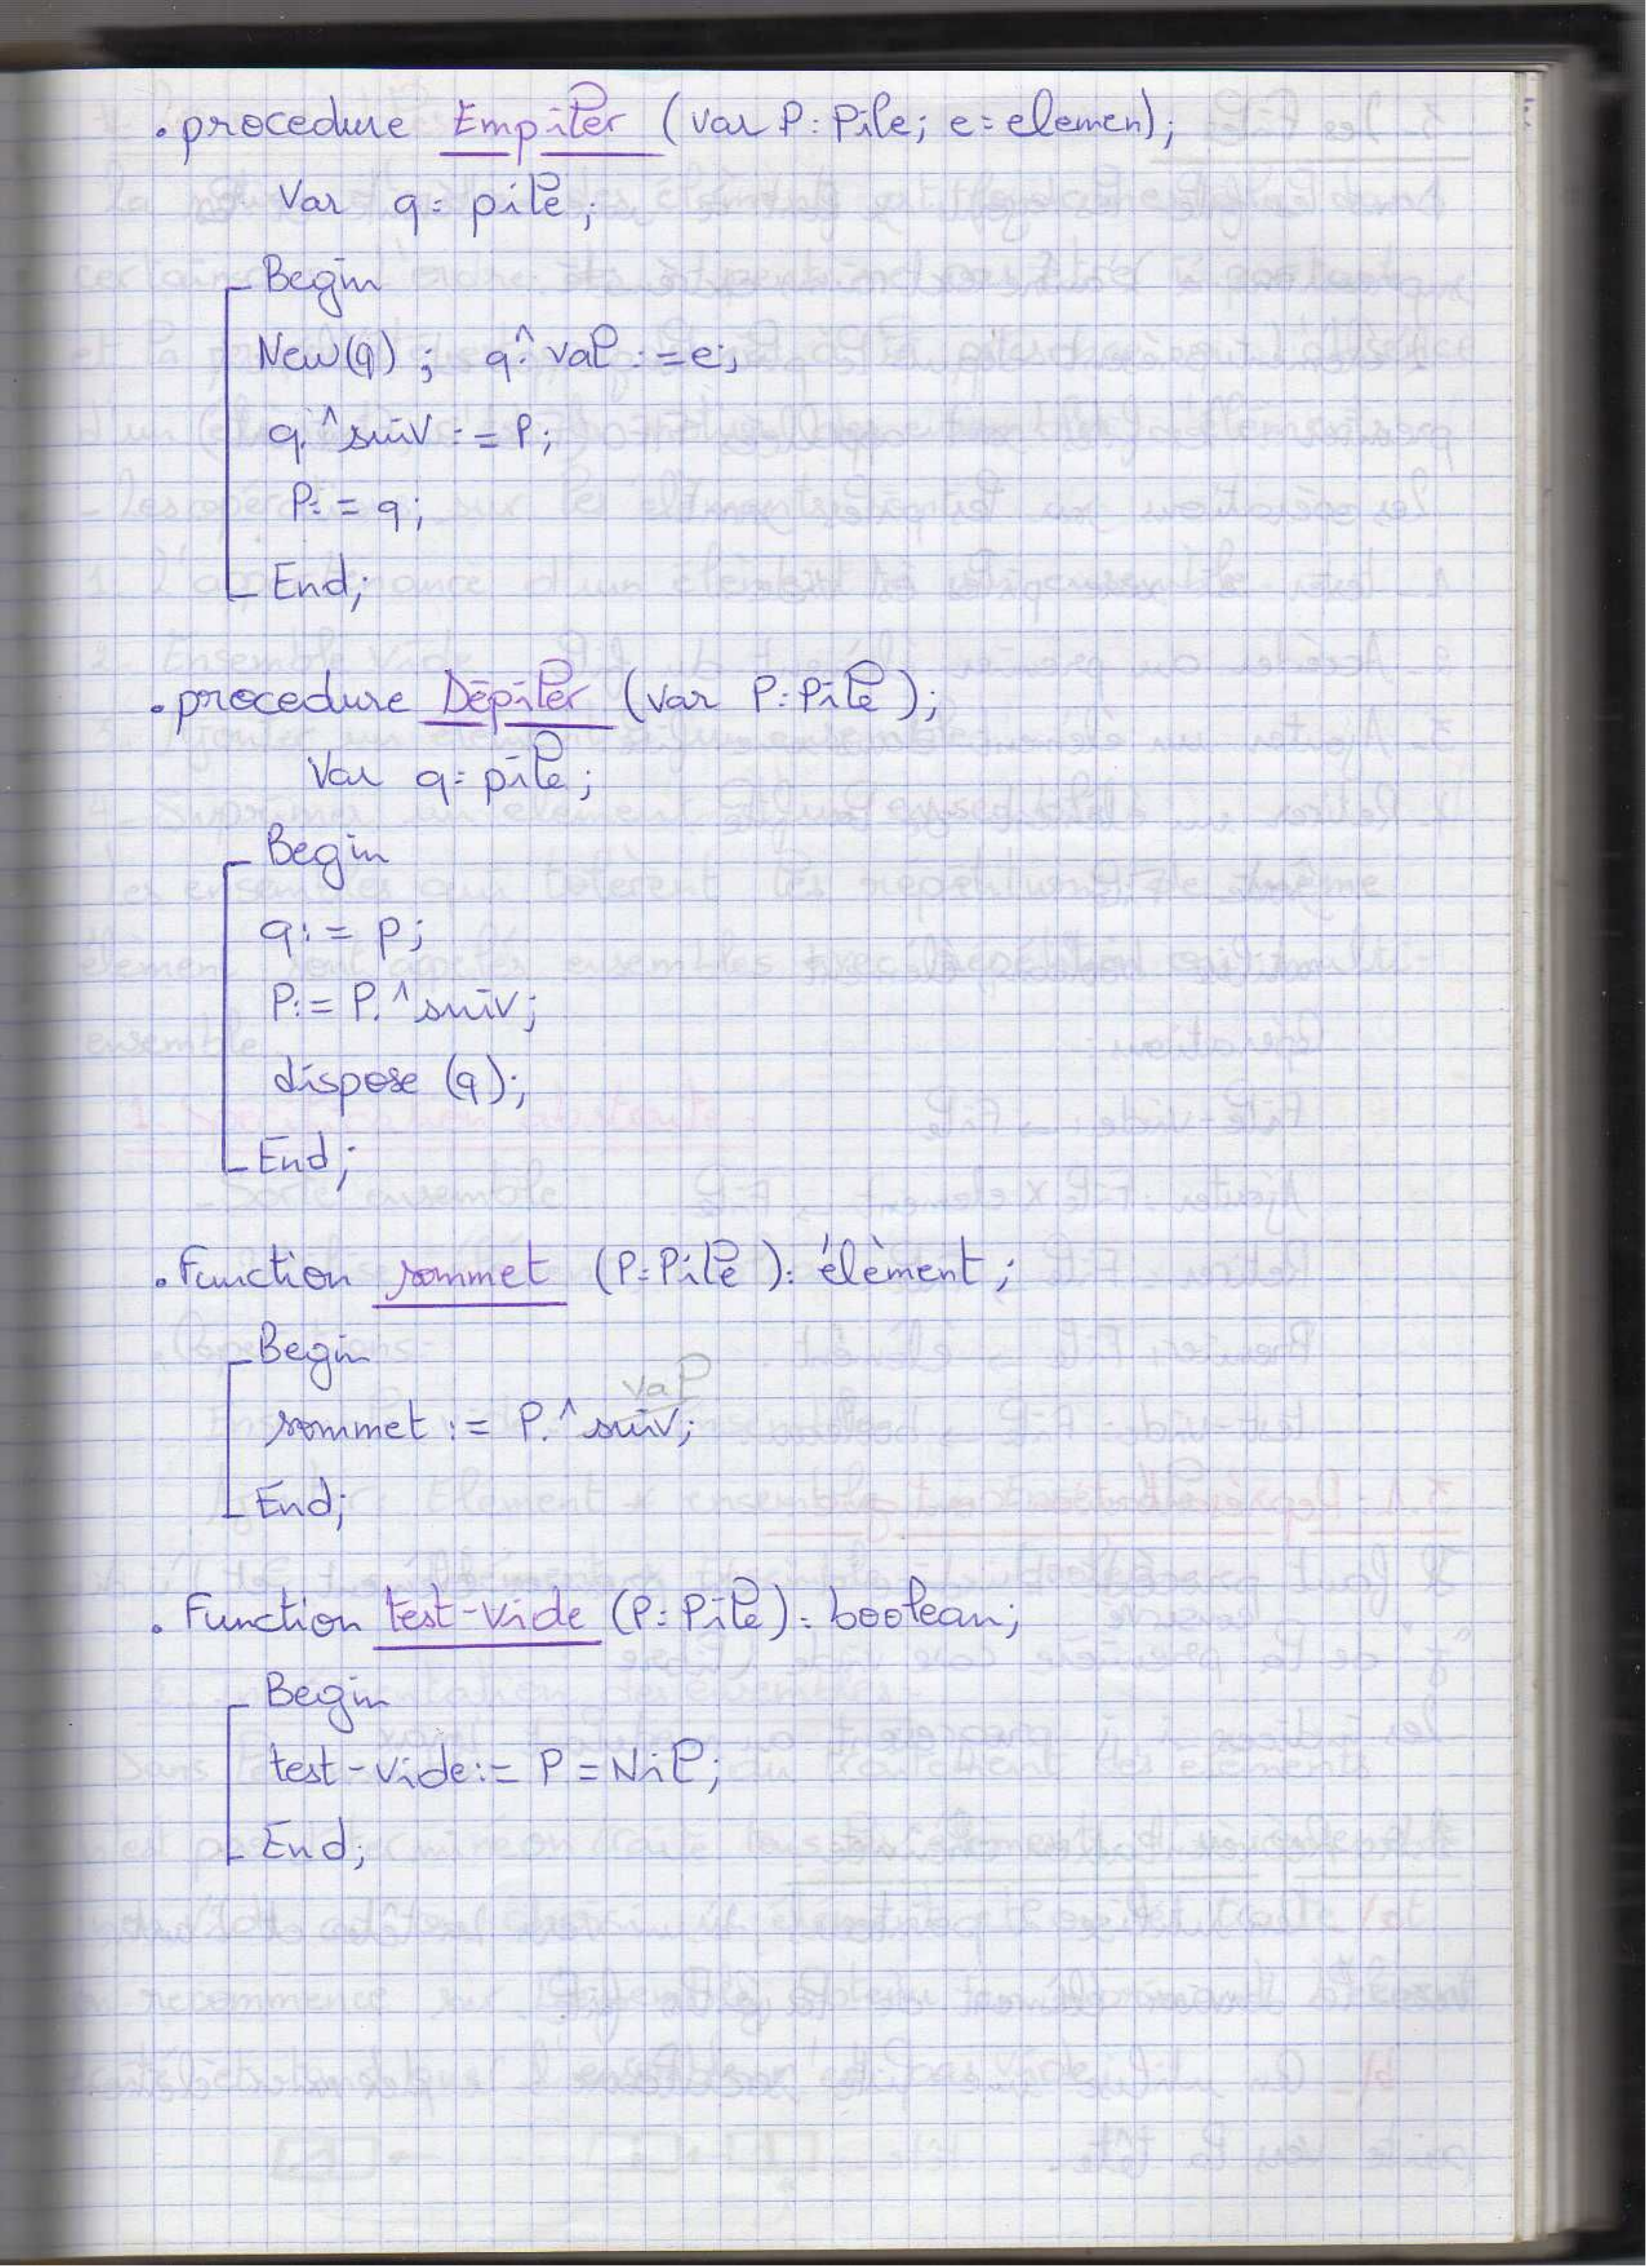 . procedure Empiler (var P: Pile; e: elemen);
Var q: pile;
Begin
New(q) ; q.^ val := e;
q.^ suiv := P;
P := q;
End;
. procedure Dépiler (var P: Pile);
Var q: pile;
Begin
q := p;
P := P.^ suiv;
dispose (q);
End;
. Function sommet (P: Pile): élèment;
Begin
val
sommet := P.^ suiv;
End;
. Function test-vide (P: Pile): boolean;
Begin
test-vide := P = Nil;
End;